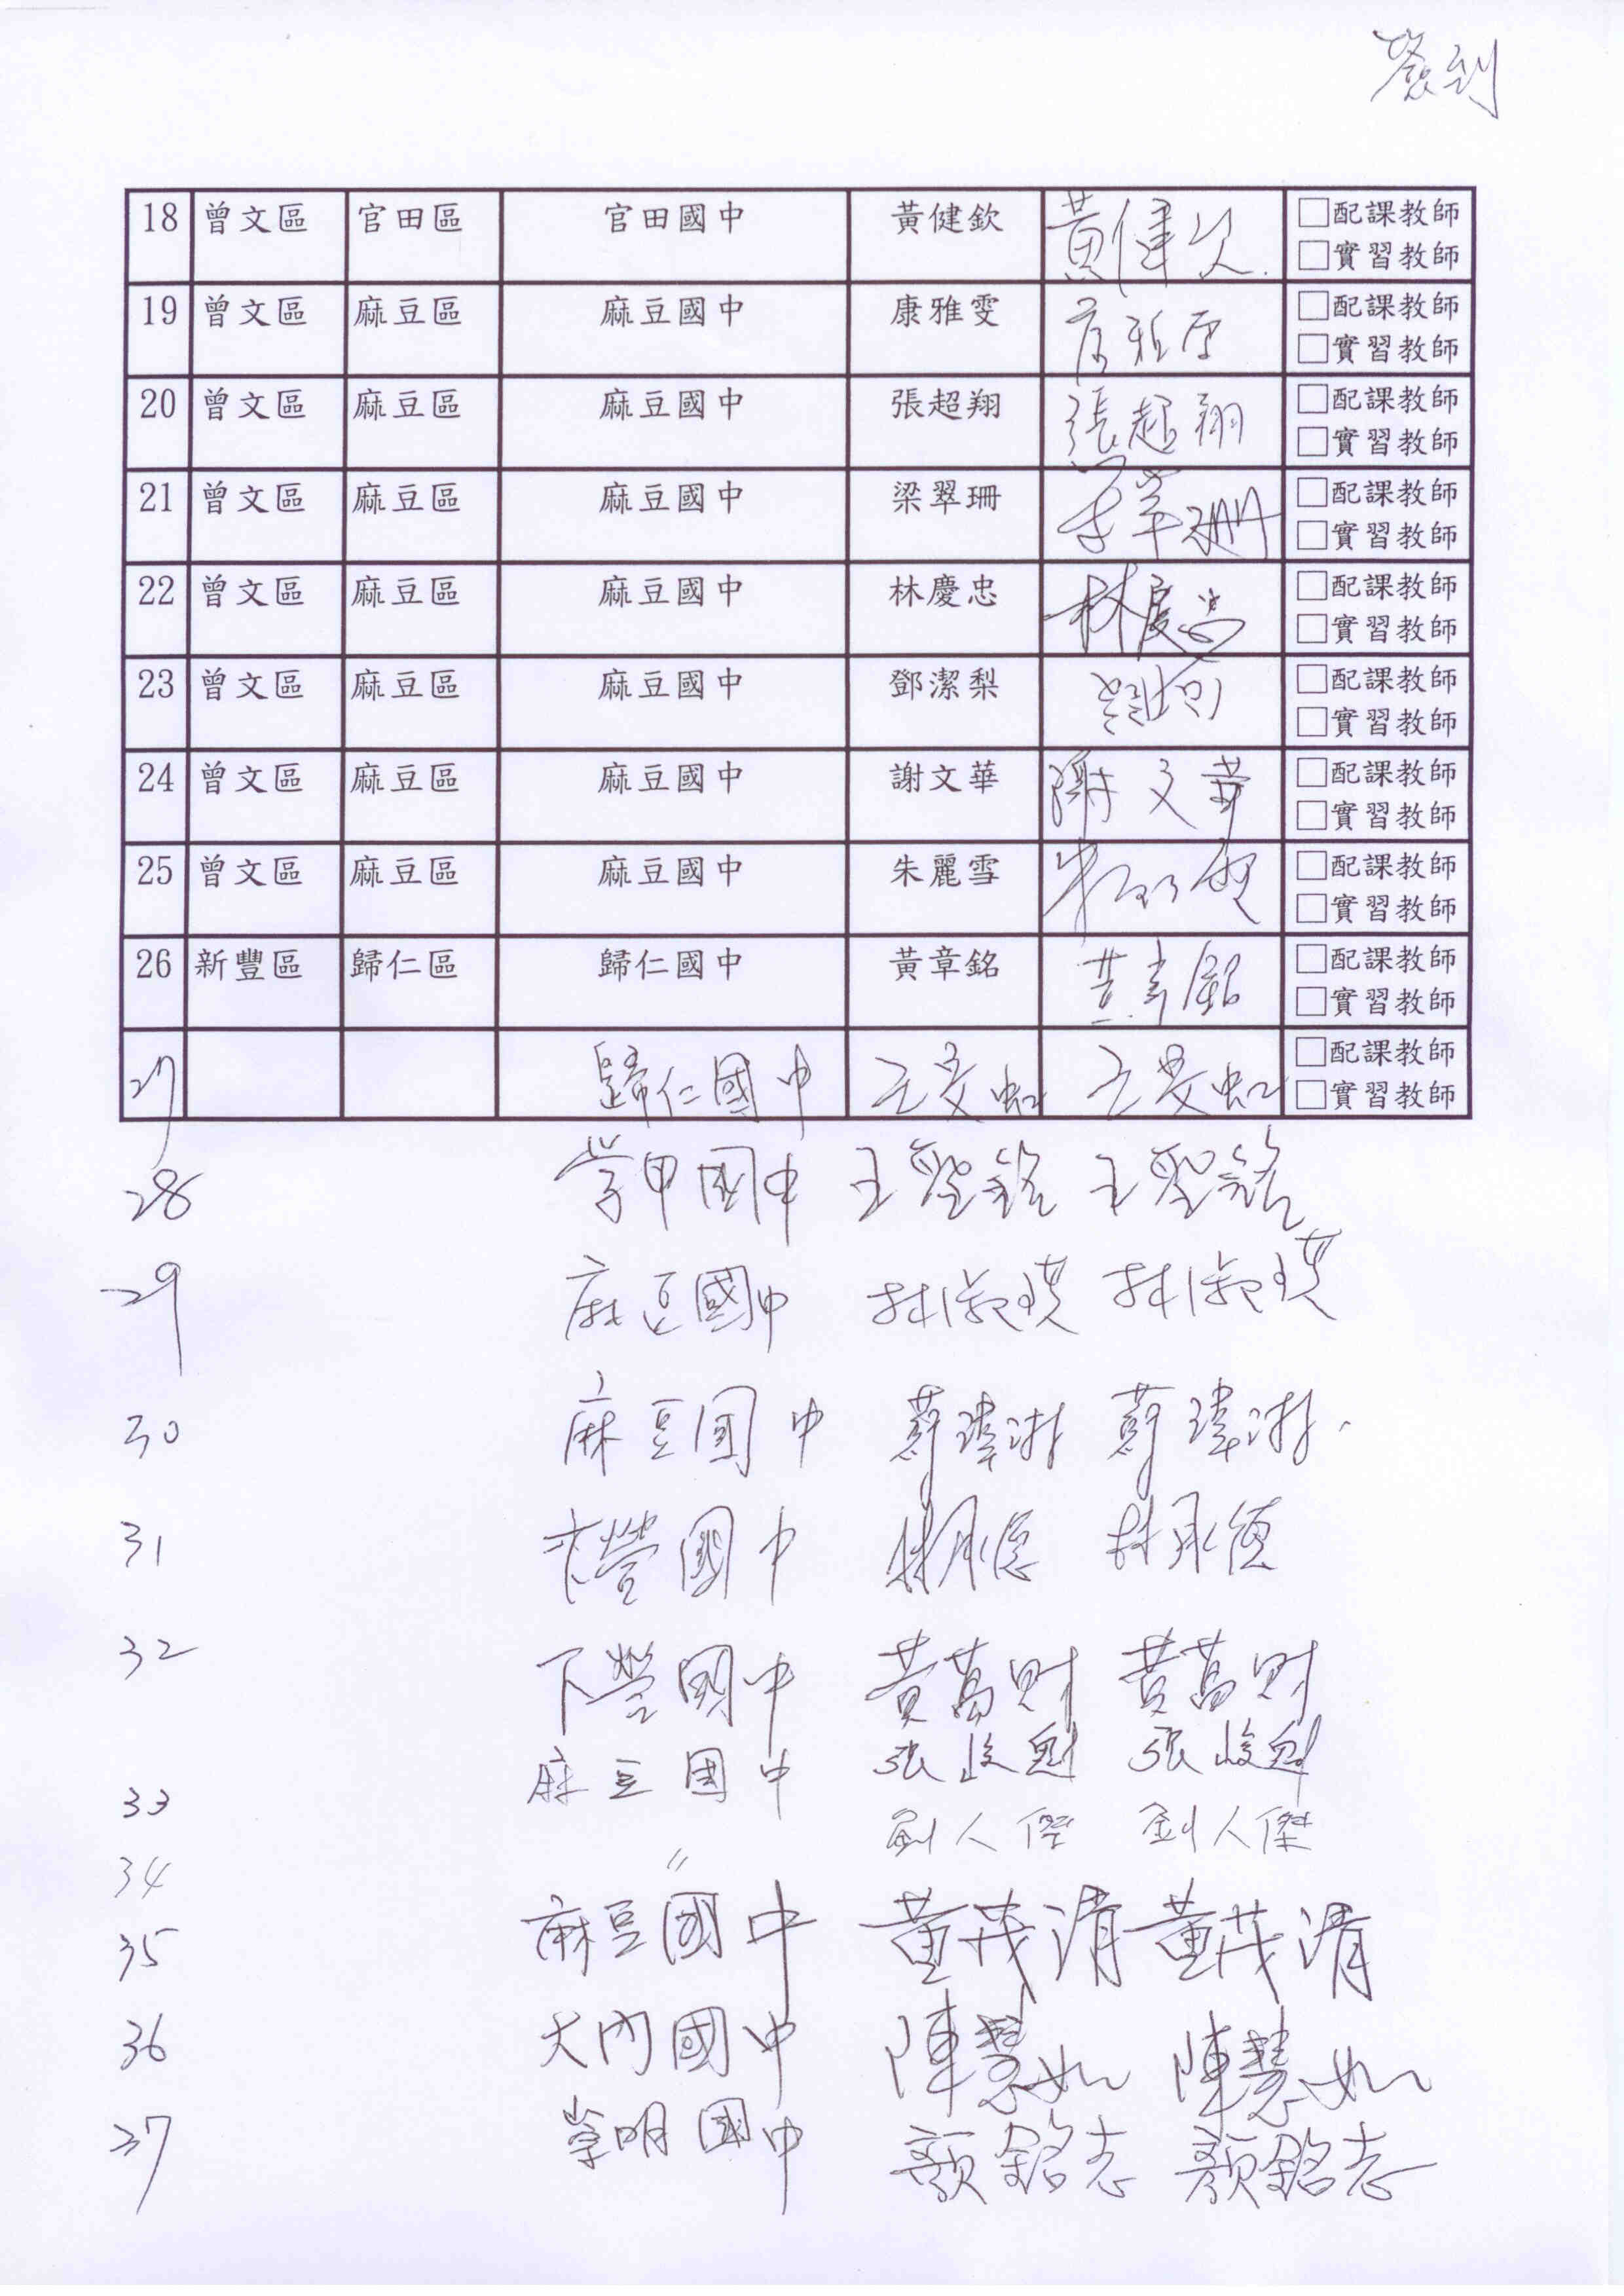 簽到
18 曾文區 官田區 官田國中 黃健欽 黃健欽 □配課教師
□實習教師
19 曾文區 麻豆區 麻豆國中 康雅雯 康雅雯 □配課教師
□實習教師
20 曾文區 麻豆區 麻豆國中 張超翔 張超翔 □配課教師
□實習教師
21 曾文區 麻豆區 麻豆國中 梁翠珊 梁翠珊 □配課教師
□實習教師
22 曾文區 麻豆區 麻豆國中 林慶忠 林慶忠 □配課教師
□實習教師
23 曾文區 麻豆區 麻豆國中 鄧潔梨 □配課教師
□實習教師
24 曾文區 麻豆區 麻豆國中 謝文華 謝文華 □配課教師
□實習教師
25 曾文區 麻豆區 麻豆國中 朱麗雪 朱麗雪 □配課教師
□實習教師
26 新豐區 歸仁區 歸仁國中 黃章銘 黃章銘 □配課教師
□實習教師
27 歸仁國中 王文虹 王文虹 □配課教師
□實習教師
28 学甲國中 王聖銘 王聖銘
29 麻豆國中 林淑瑛 林淑瑛
30 麻豆国中
31 國中 林永德 林永德
32 下營國中 黃萬財 黃萬財
33 麻豆國中 張峻魁 張峻魁
34 〃 劉人傑 劉人傑
35 麻豆國中 董茂清 董茂清
36 大內國中 陳慧如 陳慧如
37 崇明國中 顏銘志 顏銘志